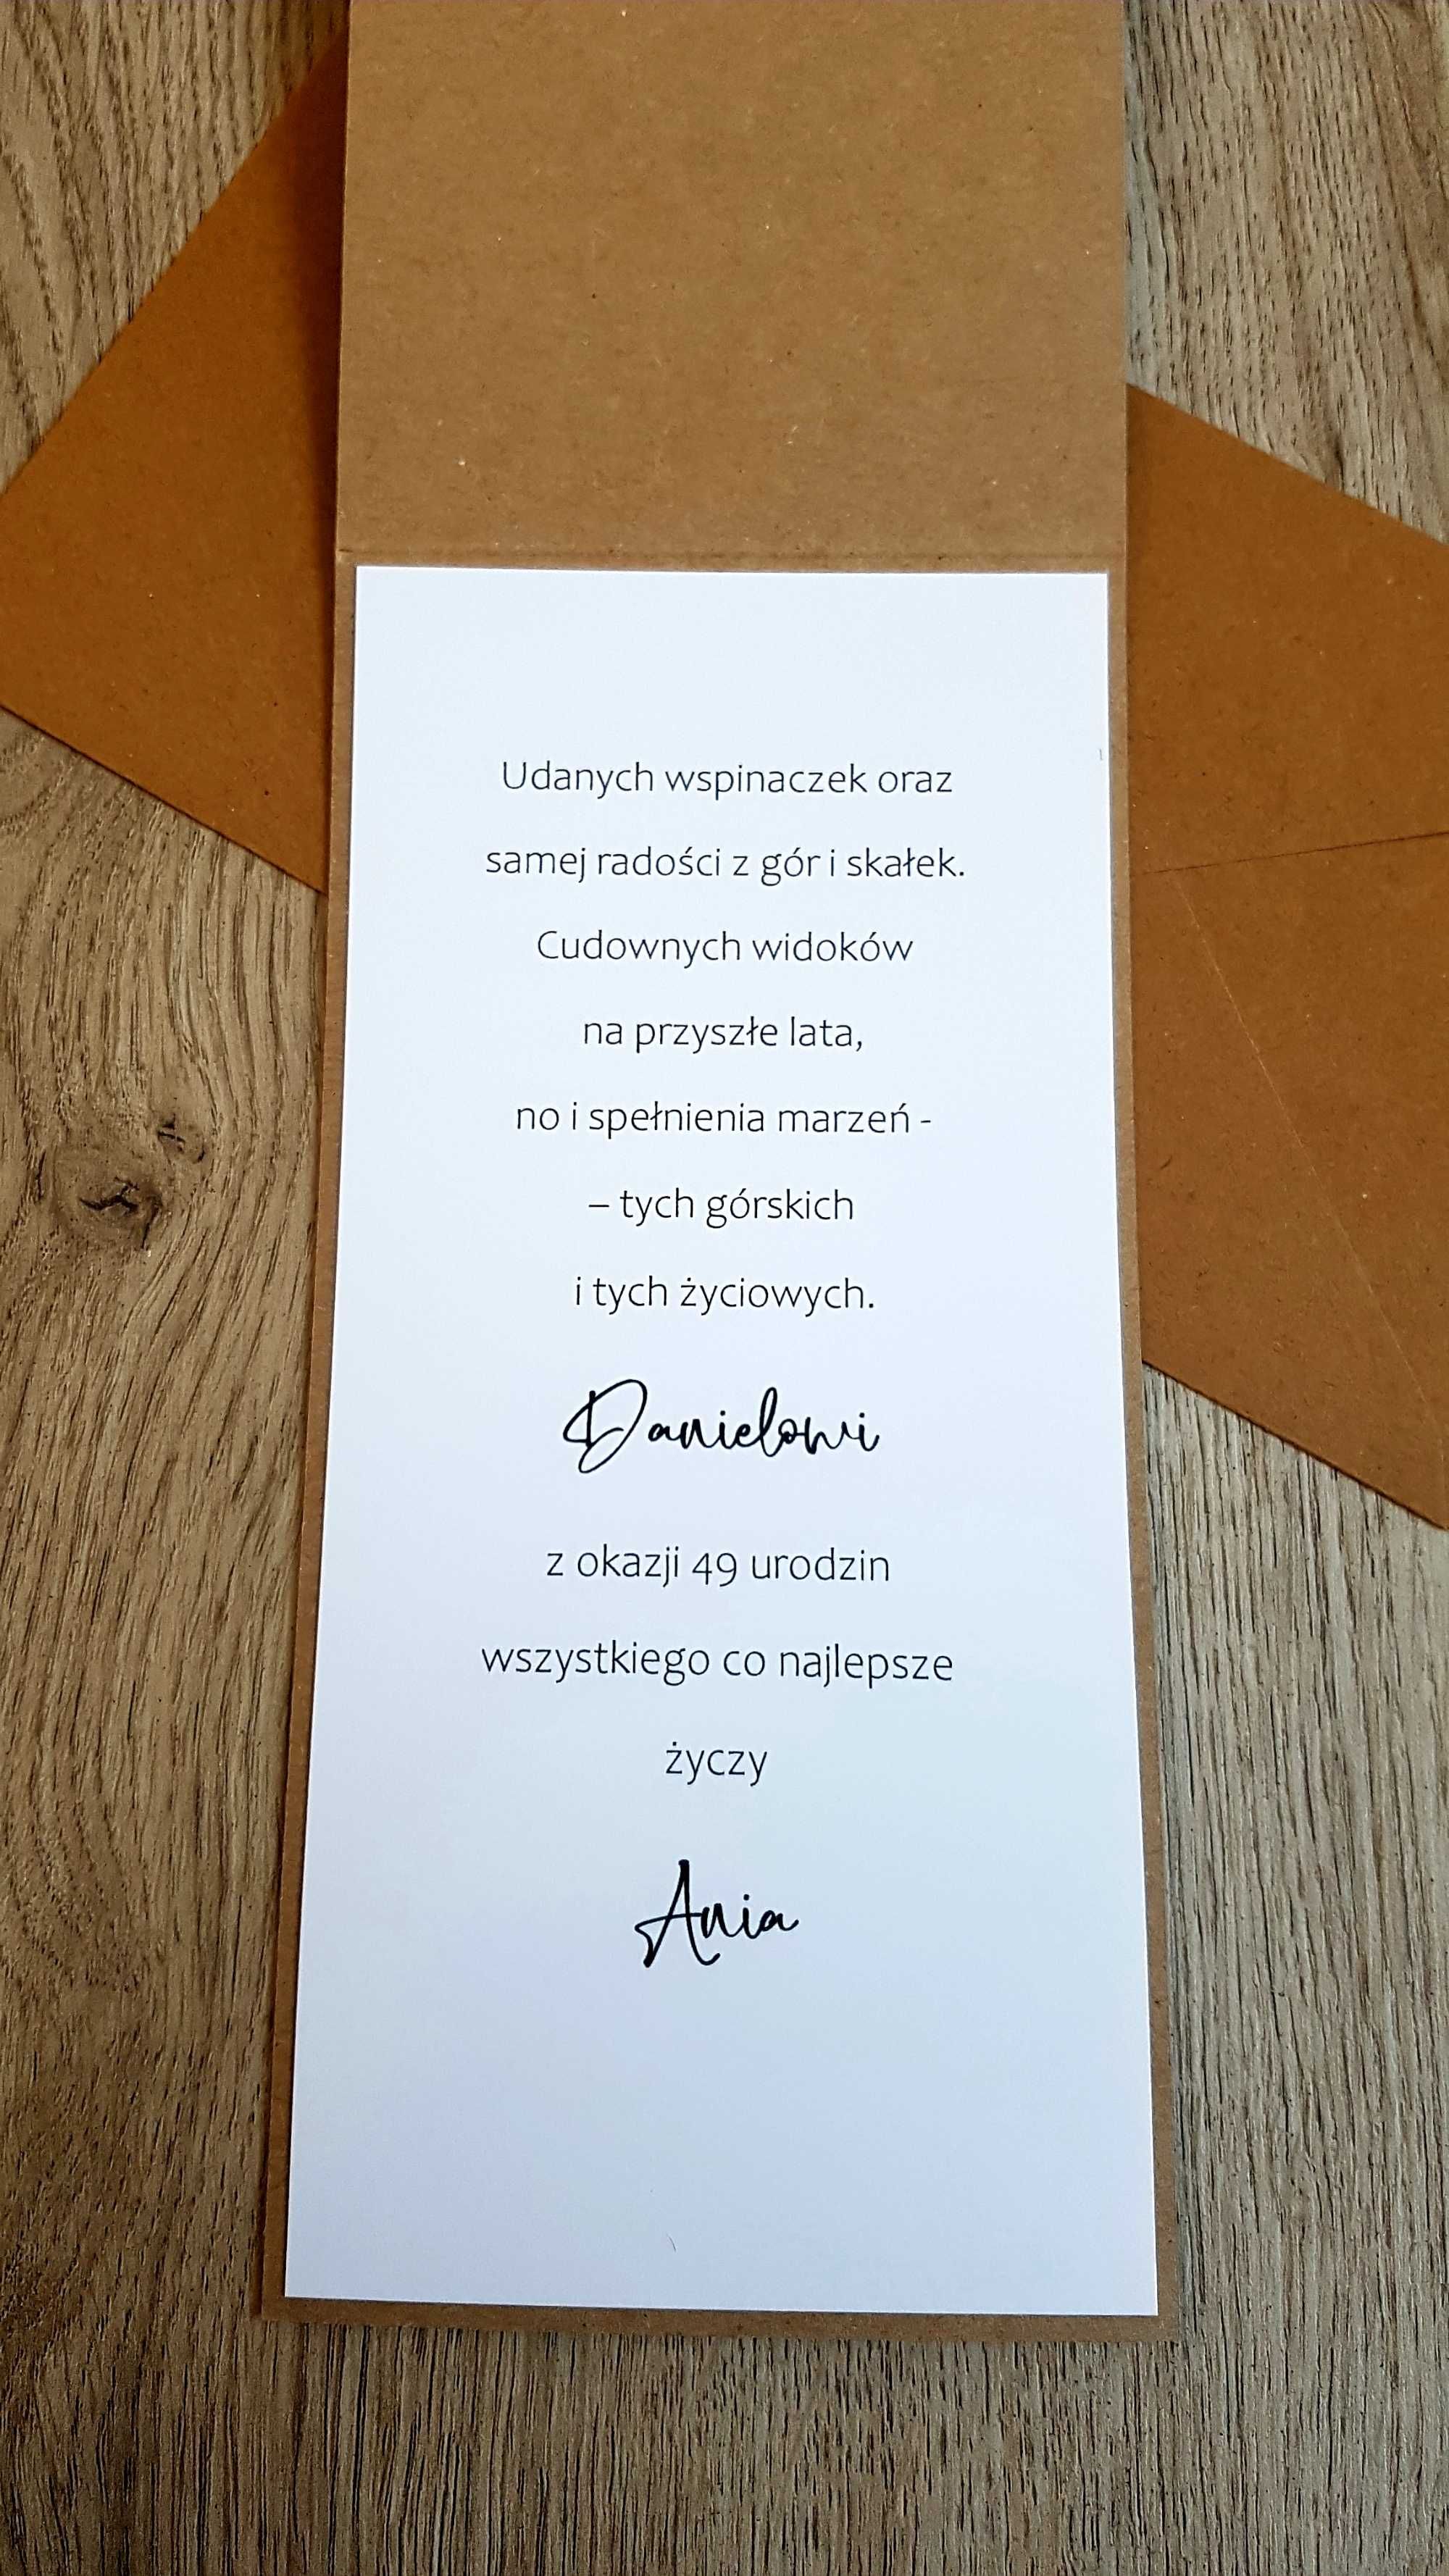 Udanych wspinaczek oraz
samej radości z gór i skałek.
Cudownych widoków
na przyszłe lata,
no i spełnienia marzeń -
– tych górskich
i tych życiowych.
Danielowi
z okazji 49 urodzin
wszystkiego co najlepsze
życzy
Ania